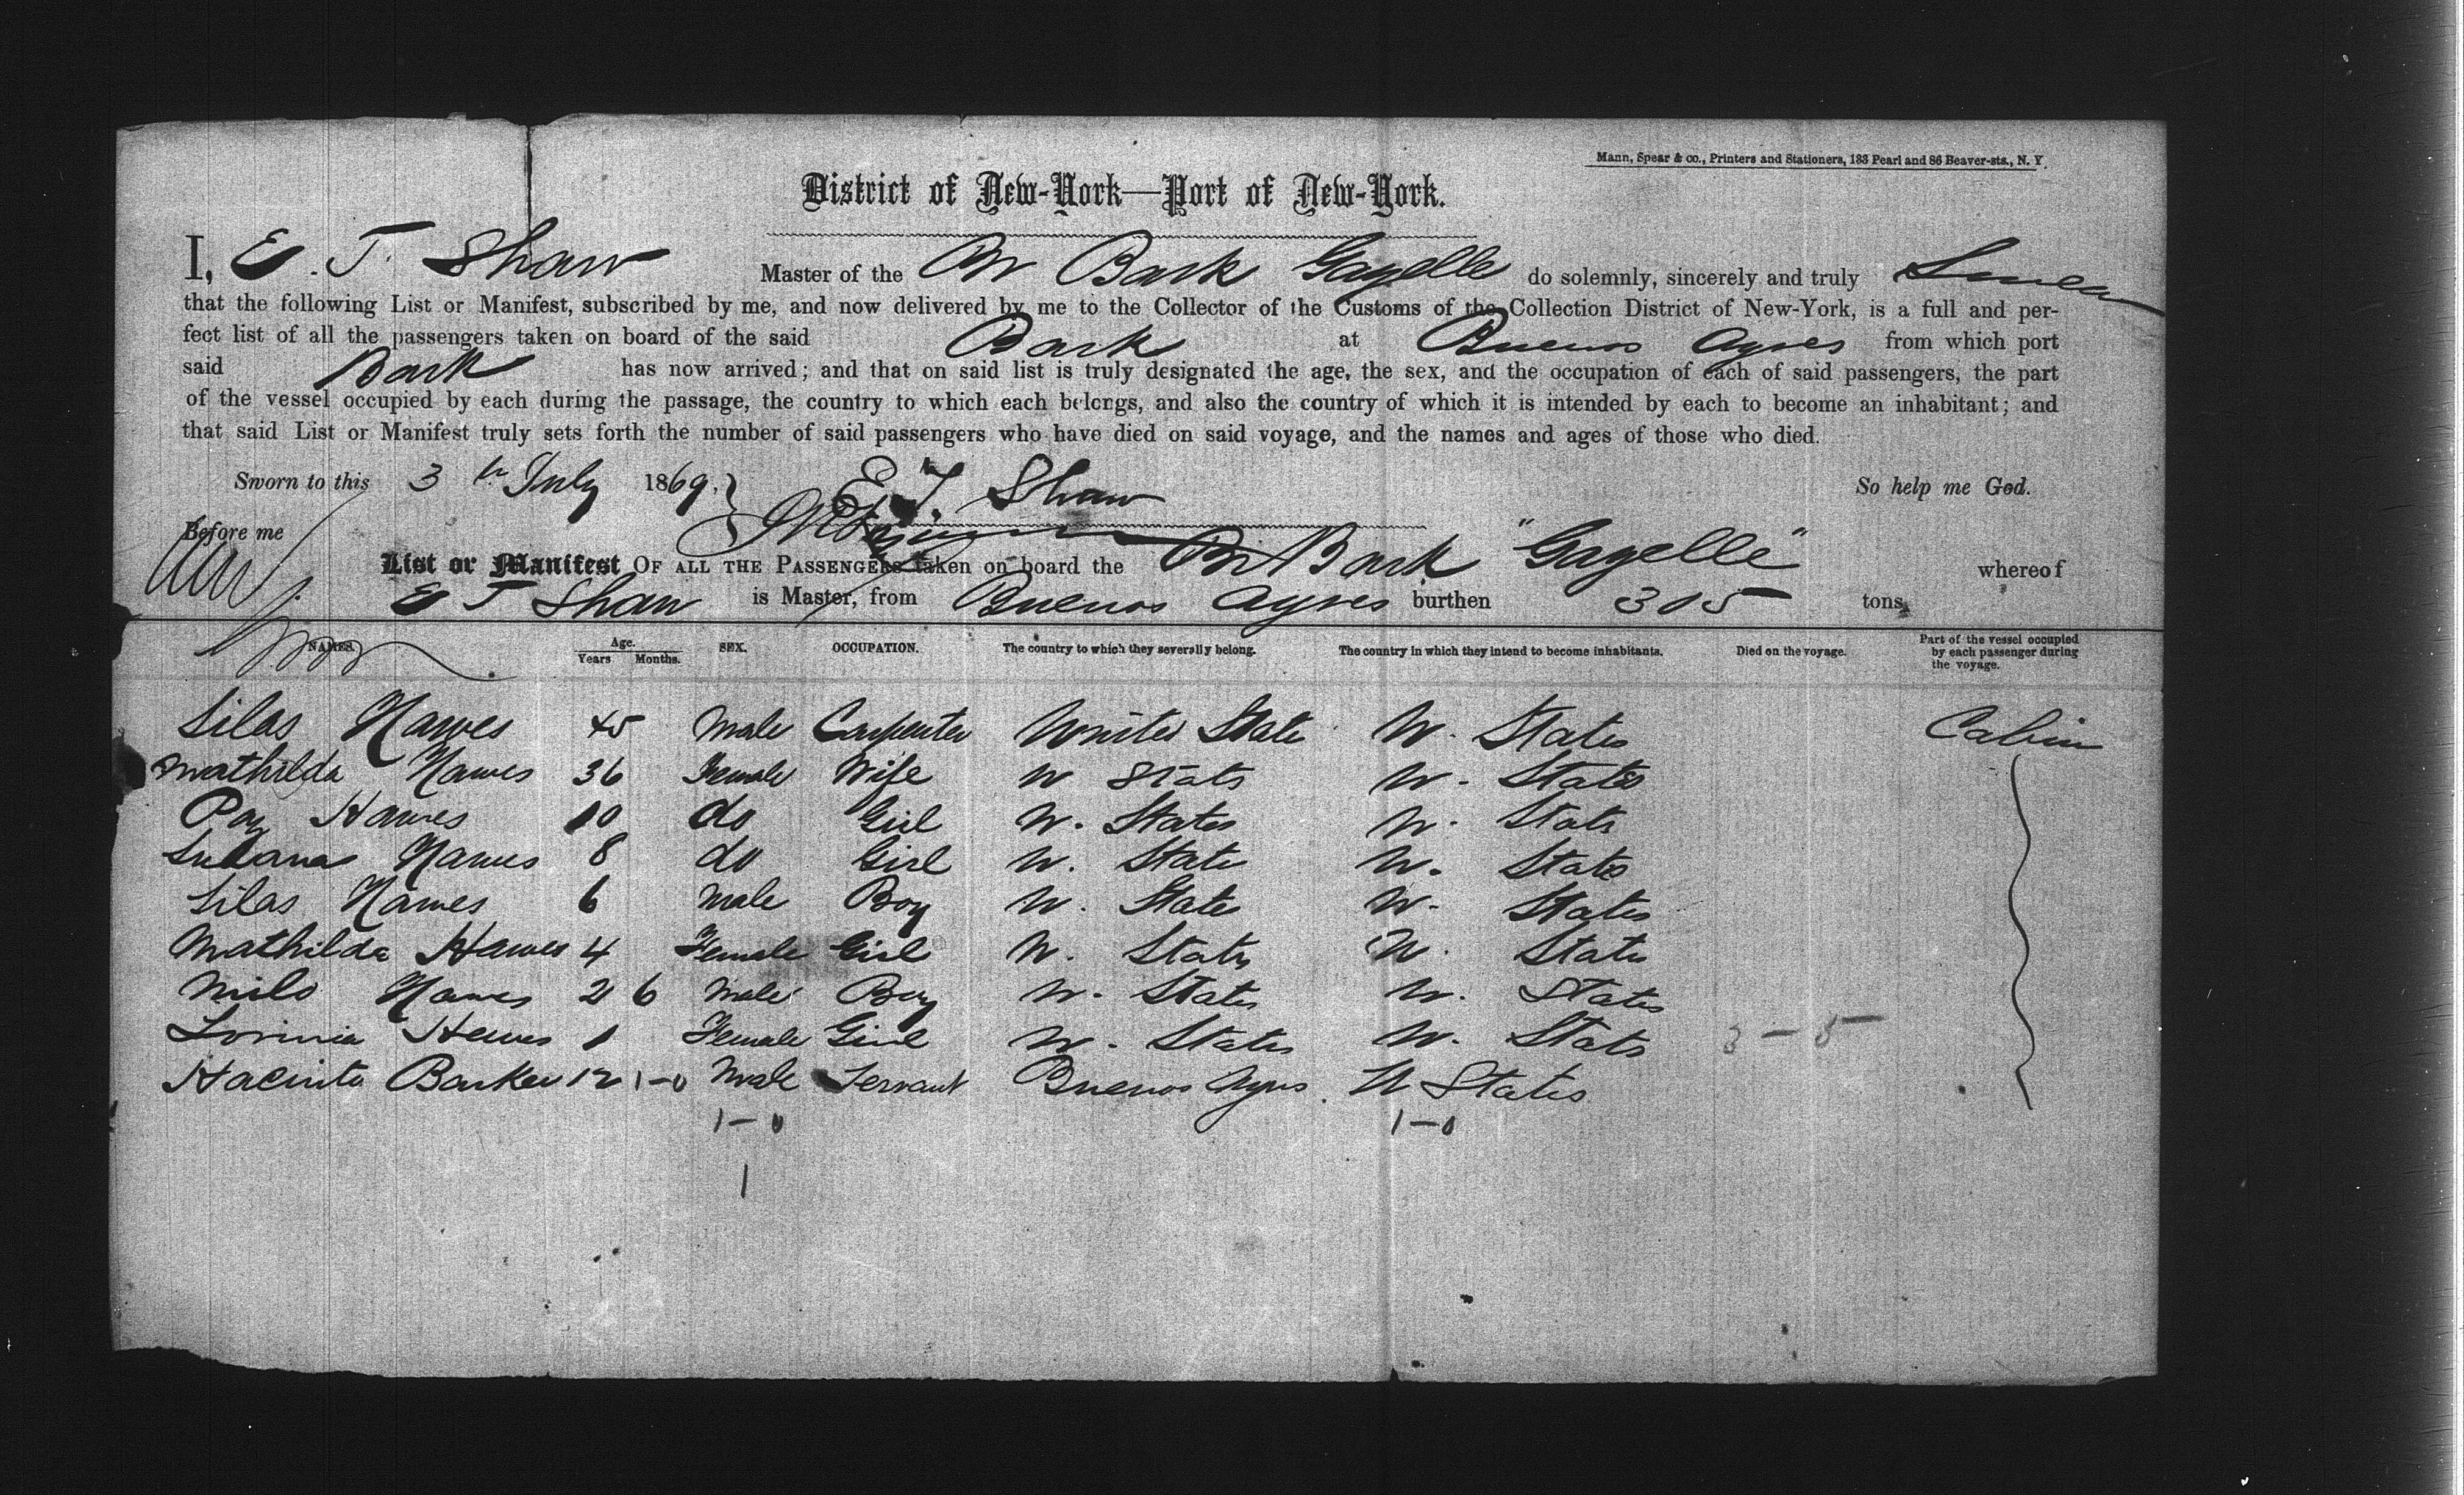 Mann, Spear & co., Printers and Stationers, 133 Pearl and 86 Beaver-sts., N. Y.
District of New-York—Port of New-York.
I, E. T. Shaw Master of the Br Bark Gazelle do solemnly, sincerely and truly Swear
that the following List or Manifest, subscribed by me, and now delivered by me to the Collector of the Customs of the Collection District of New-York, is a full and per-
fect list of all the passengers taken on board of the said Bark at Buenos Ayres from which port
said Bark has now arrived; and that on said list is truly designated the age, the sex, and the occupation of each of said passengers, the part
of the vessel occupied by each during the passage, the country to which each belongs, and also the country of which it is intended by each to become an inhabitant; and
that said List or Manifest truly sets forth the number of said passengers who have died on said voyage, and the names and ages of those who died.
Sworn to this 3 July 1869. E. T. Shaw So help me God.
Before me
List or Manifest OF ALL THE PASSENGERS taken on board the Br Bark "Gazelle" whereof
E T Shaw is Master, from Buenos Ayres burthen 305 tons.
NAMES. Age. Years Months. SEX. OCCUPATION. The country to which they severally belong. The country in which they intend to become inhabitants. Died on the voyage. Part of the vessel occupied by each passenger during the voyage.
Silas Hawes 45 Male Carpenter United State U. States Cabin
Mathilda Hawes 36 Female Wife U States U. States
Hawes 10 do Girl U. States U. States
Hawes 8 do Girl U. State U. States
Silas Hawes 6 Male Boy U. State U. States
Mathilda Hawes 4 Female Girl U. States U. States
Milo Hawes 2 6 Male Boy U. States U. States
Hawes 1 Female Girl U. States U. States 3 - 5
Hacinto Barker 12 1-0 Male Servant Buenos Ayres. U States
1-0 1-0
1